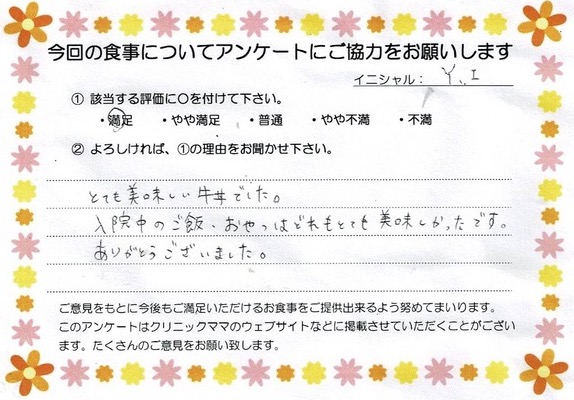 今回の食事についてアンケートにご協力をお願いします
イニシャル: Y.I
① 該当する評価に〇を付けて下さい。
・満足 ・やや満足 ・普通 ・やや不満 ・不満
② よろしければ、①の理由をお聞かせ下さい。
とても美味しい牛丼でした。
入院中のご飯・おやつはどれもとても美味しかったです。
ありがとうございました。
ご意見をもとに今後もご満足いただけるお食事をご提供出来るよう努めてまいります。
このアンケートはクリニックママのウェブサイトなどに掲載させていただくことがござい
ます。たくさんのご意見をお願い致します。